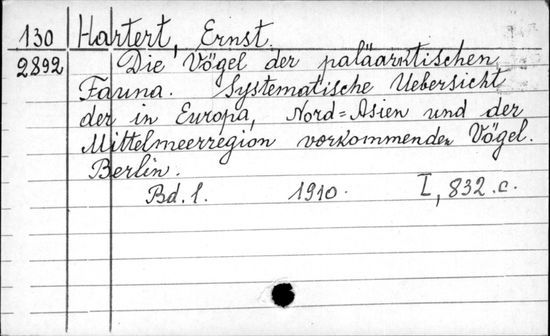 130 Hartert, Ernst.
2892 Die Vögel der paläarktischen
Fauna. Systematische Uebersicht
der in Europa, Nord=Asien und der
Mittelmeerregion vorkommenden Vögel.
Berlin.
Bd. 1. 1910. I, 832. c.